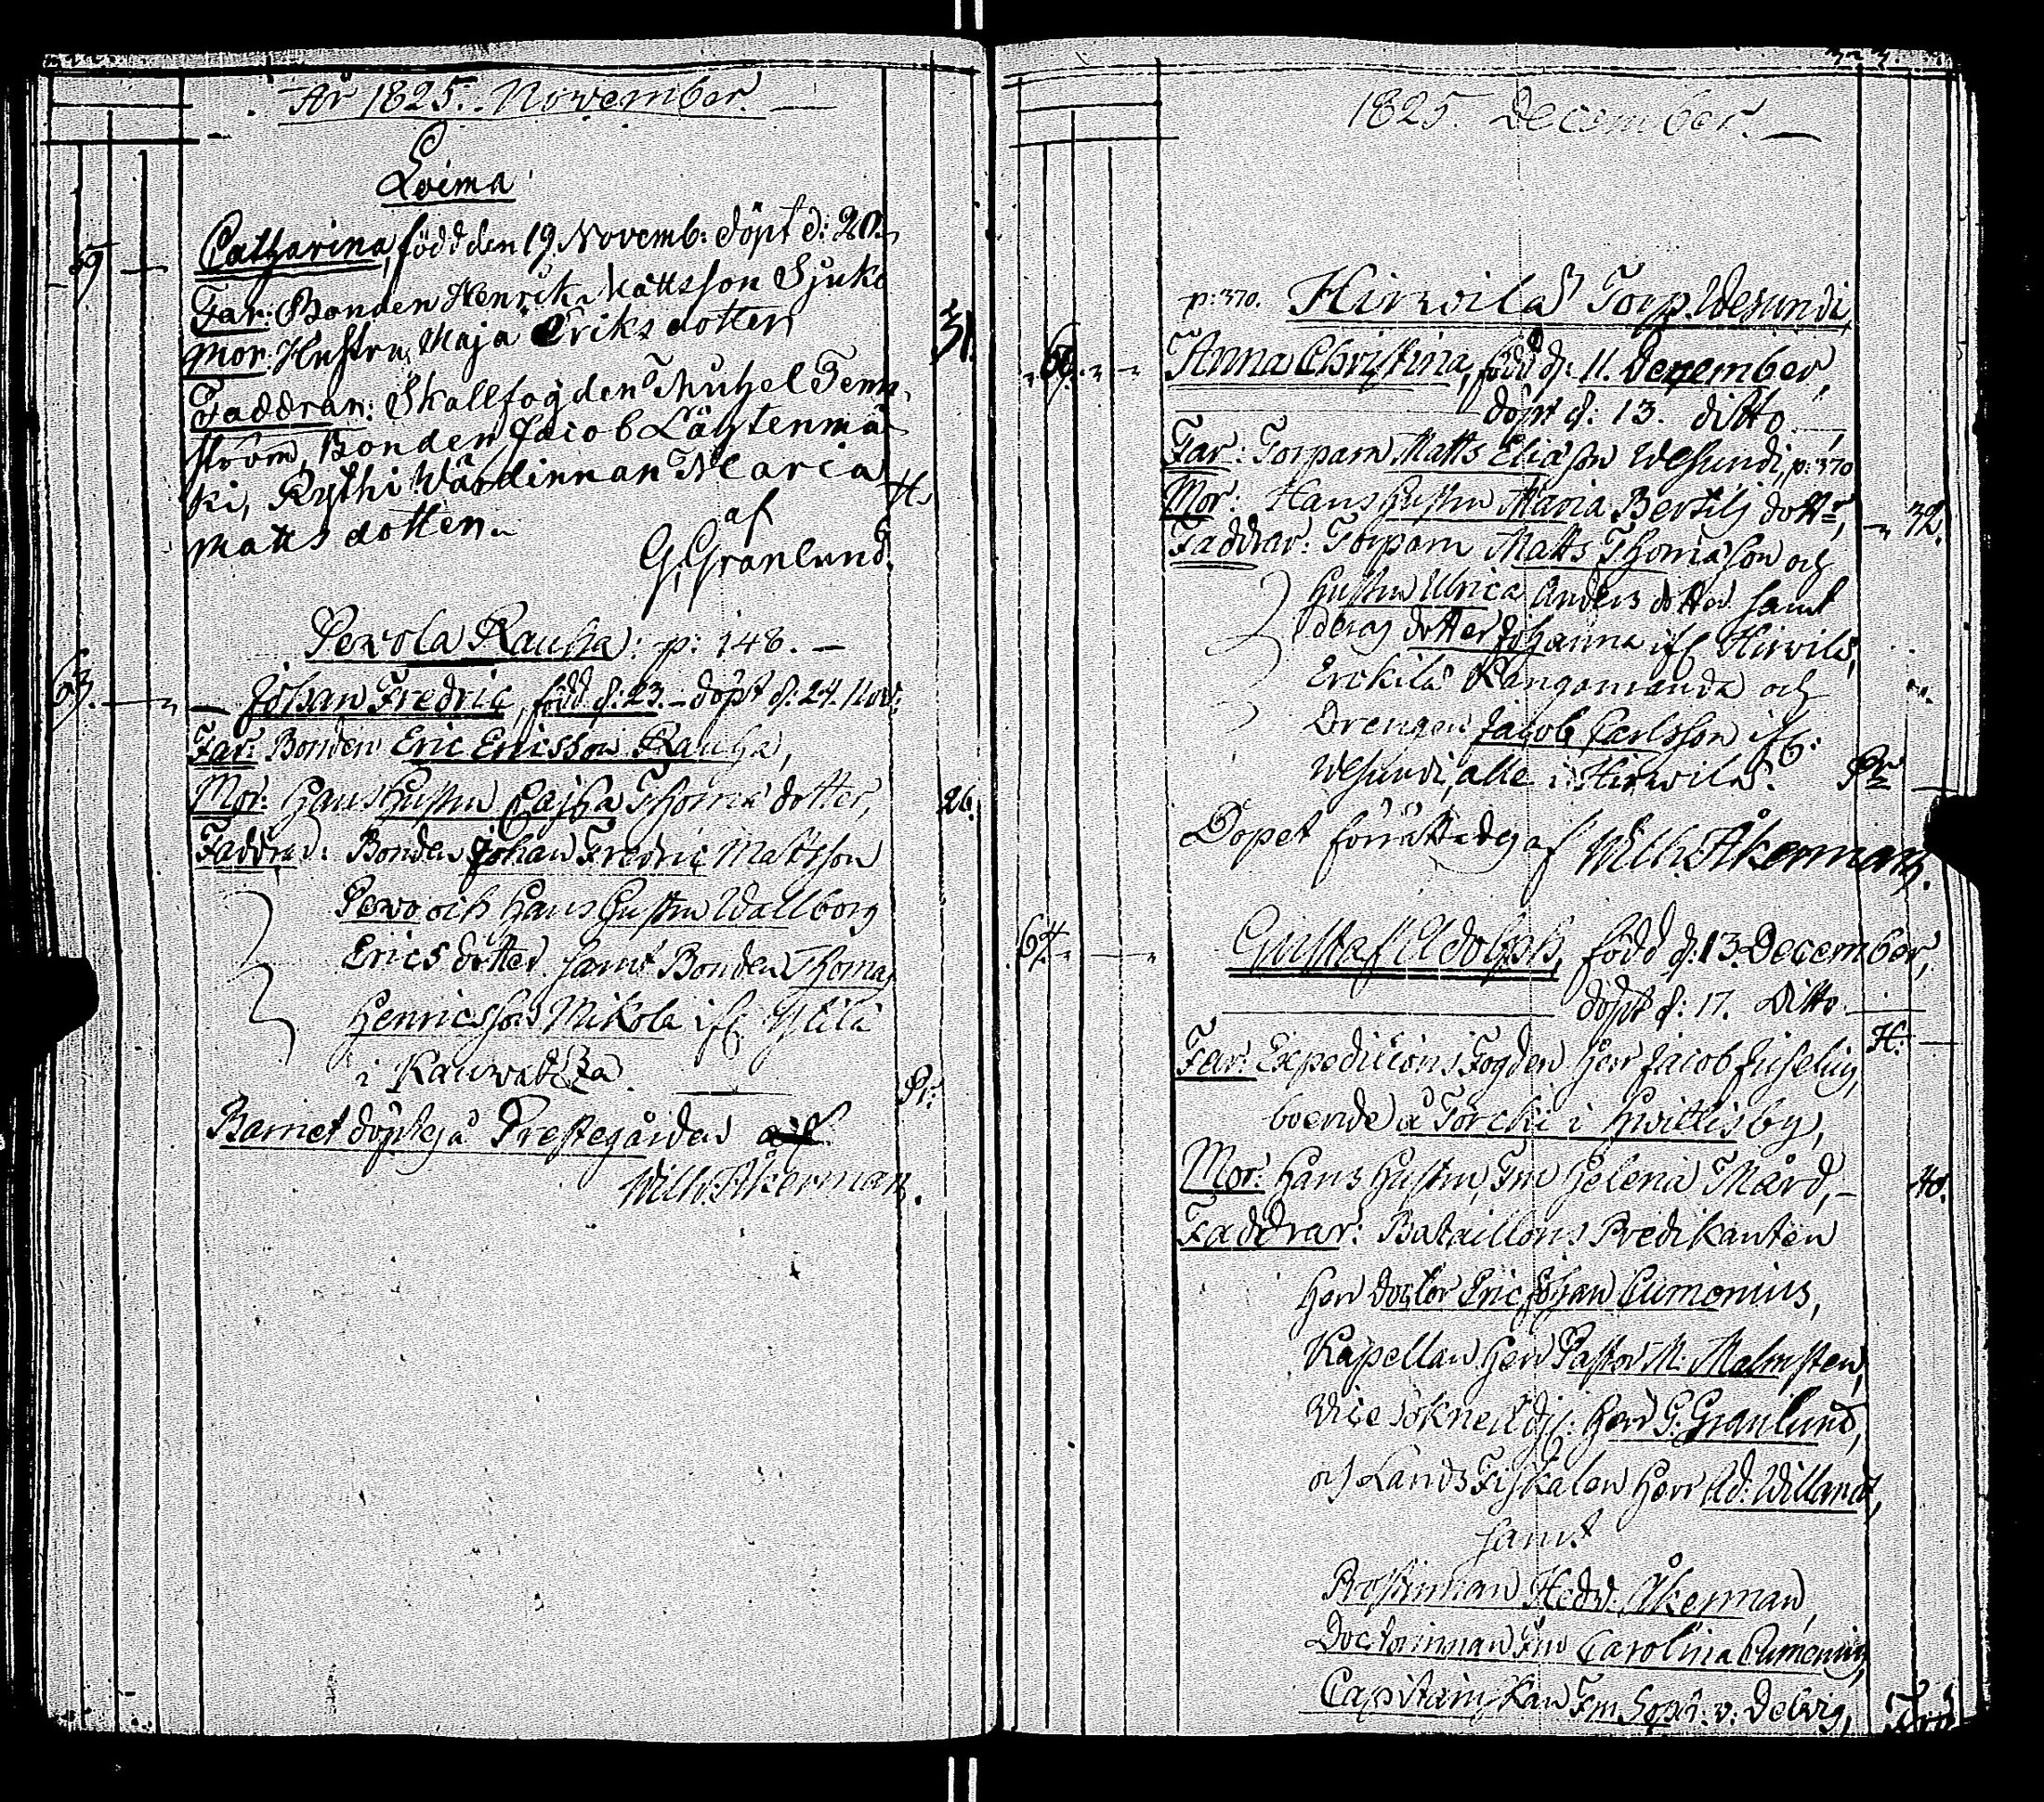 År 1825. November.
Loima
59 Catharina, född den 19 Novemb: döpt d: 20.
Far: Bonden Henrik Mattsson Sjuko
Mor: Hustru Maja Eriksdotter 31.
Faddrar: Skallfogden Mickel Tenn
ström, Bonden Jacob Lästenmä
ki, Rythi Wärdinnan Maria H.
Matts dotter.
af
G. Granlund.
Perola Rauha: p: 148.
63. Johan Fredric, född d: 23. döpt d: 24. Nov:
Far: Bonden Eric Ericsson Rauha,
Mor: Hans Hustru Cajsa Thomæ dotter, 26.
Faddrar: Bonden Johan Fredric Mattsson
Pero och Hans Hustru Wallborg
Erics dotter samt Bonden Thomas
Henricsson Mikola ifr. Ylili
i Kauwatza. Pr:
Barnet döptes å Prestegården af
Wilh. Åkerman.
1825. December.
p: 370. Hirwilä Torp. Wesundi,
Anna Christina, född d: 11. December,
döpt d: 13. ditto.
Far: Torparn Matts Eliasson Wesundi, p: 370
Mor: Hans Hustru Maria Bertils dott:r, 32.
Faddrar: Torparn Matts Thomasson och
Hustrun Ulrica Anders dotter samt
deras dotter Johanna ifr Hirwilä,
Erckilä Kangamanda och
Drengen Jacob Carlsson ifr.
Wesundi, alle i Hirwilä. Pr
Dopet förrättades af Wilh. Åkerman.
64. Gustaf Adolph, född d: 13. December,
döpt d: 17. Ditto.
H:
Far: Expeditions Fogden Herr Jacob
boende å Torcki i Hwittisby,
Mor: Hans Hustru, Fru Helena Mård, 40.
Faddrar: Bataillons Predikanten
Herr Doctor Eric Johan Cumenius,
Kapellan Herr Pastor M. Malmsten,
Vice Sokne Adj: Herr G. Granlund,
och Lands Fiskalen Herr Ad: Willandt,
samt
Prostinnan Hedv. Åkerman,
Doctorinnan Fru Carolina Cumenius,
Capitainskan Fru Soph: v: Delwig,